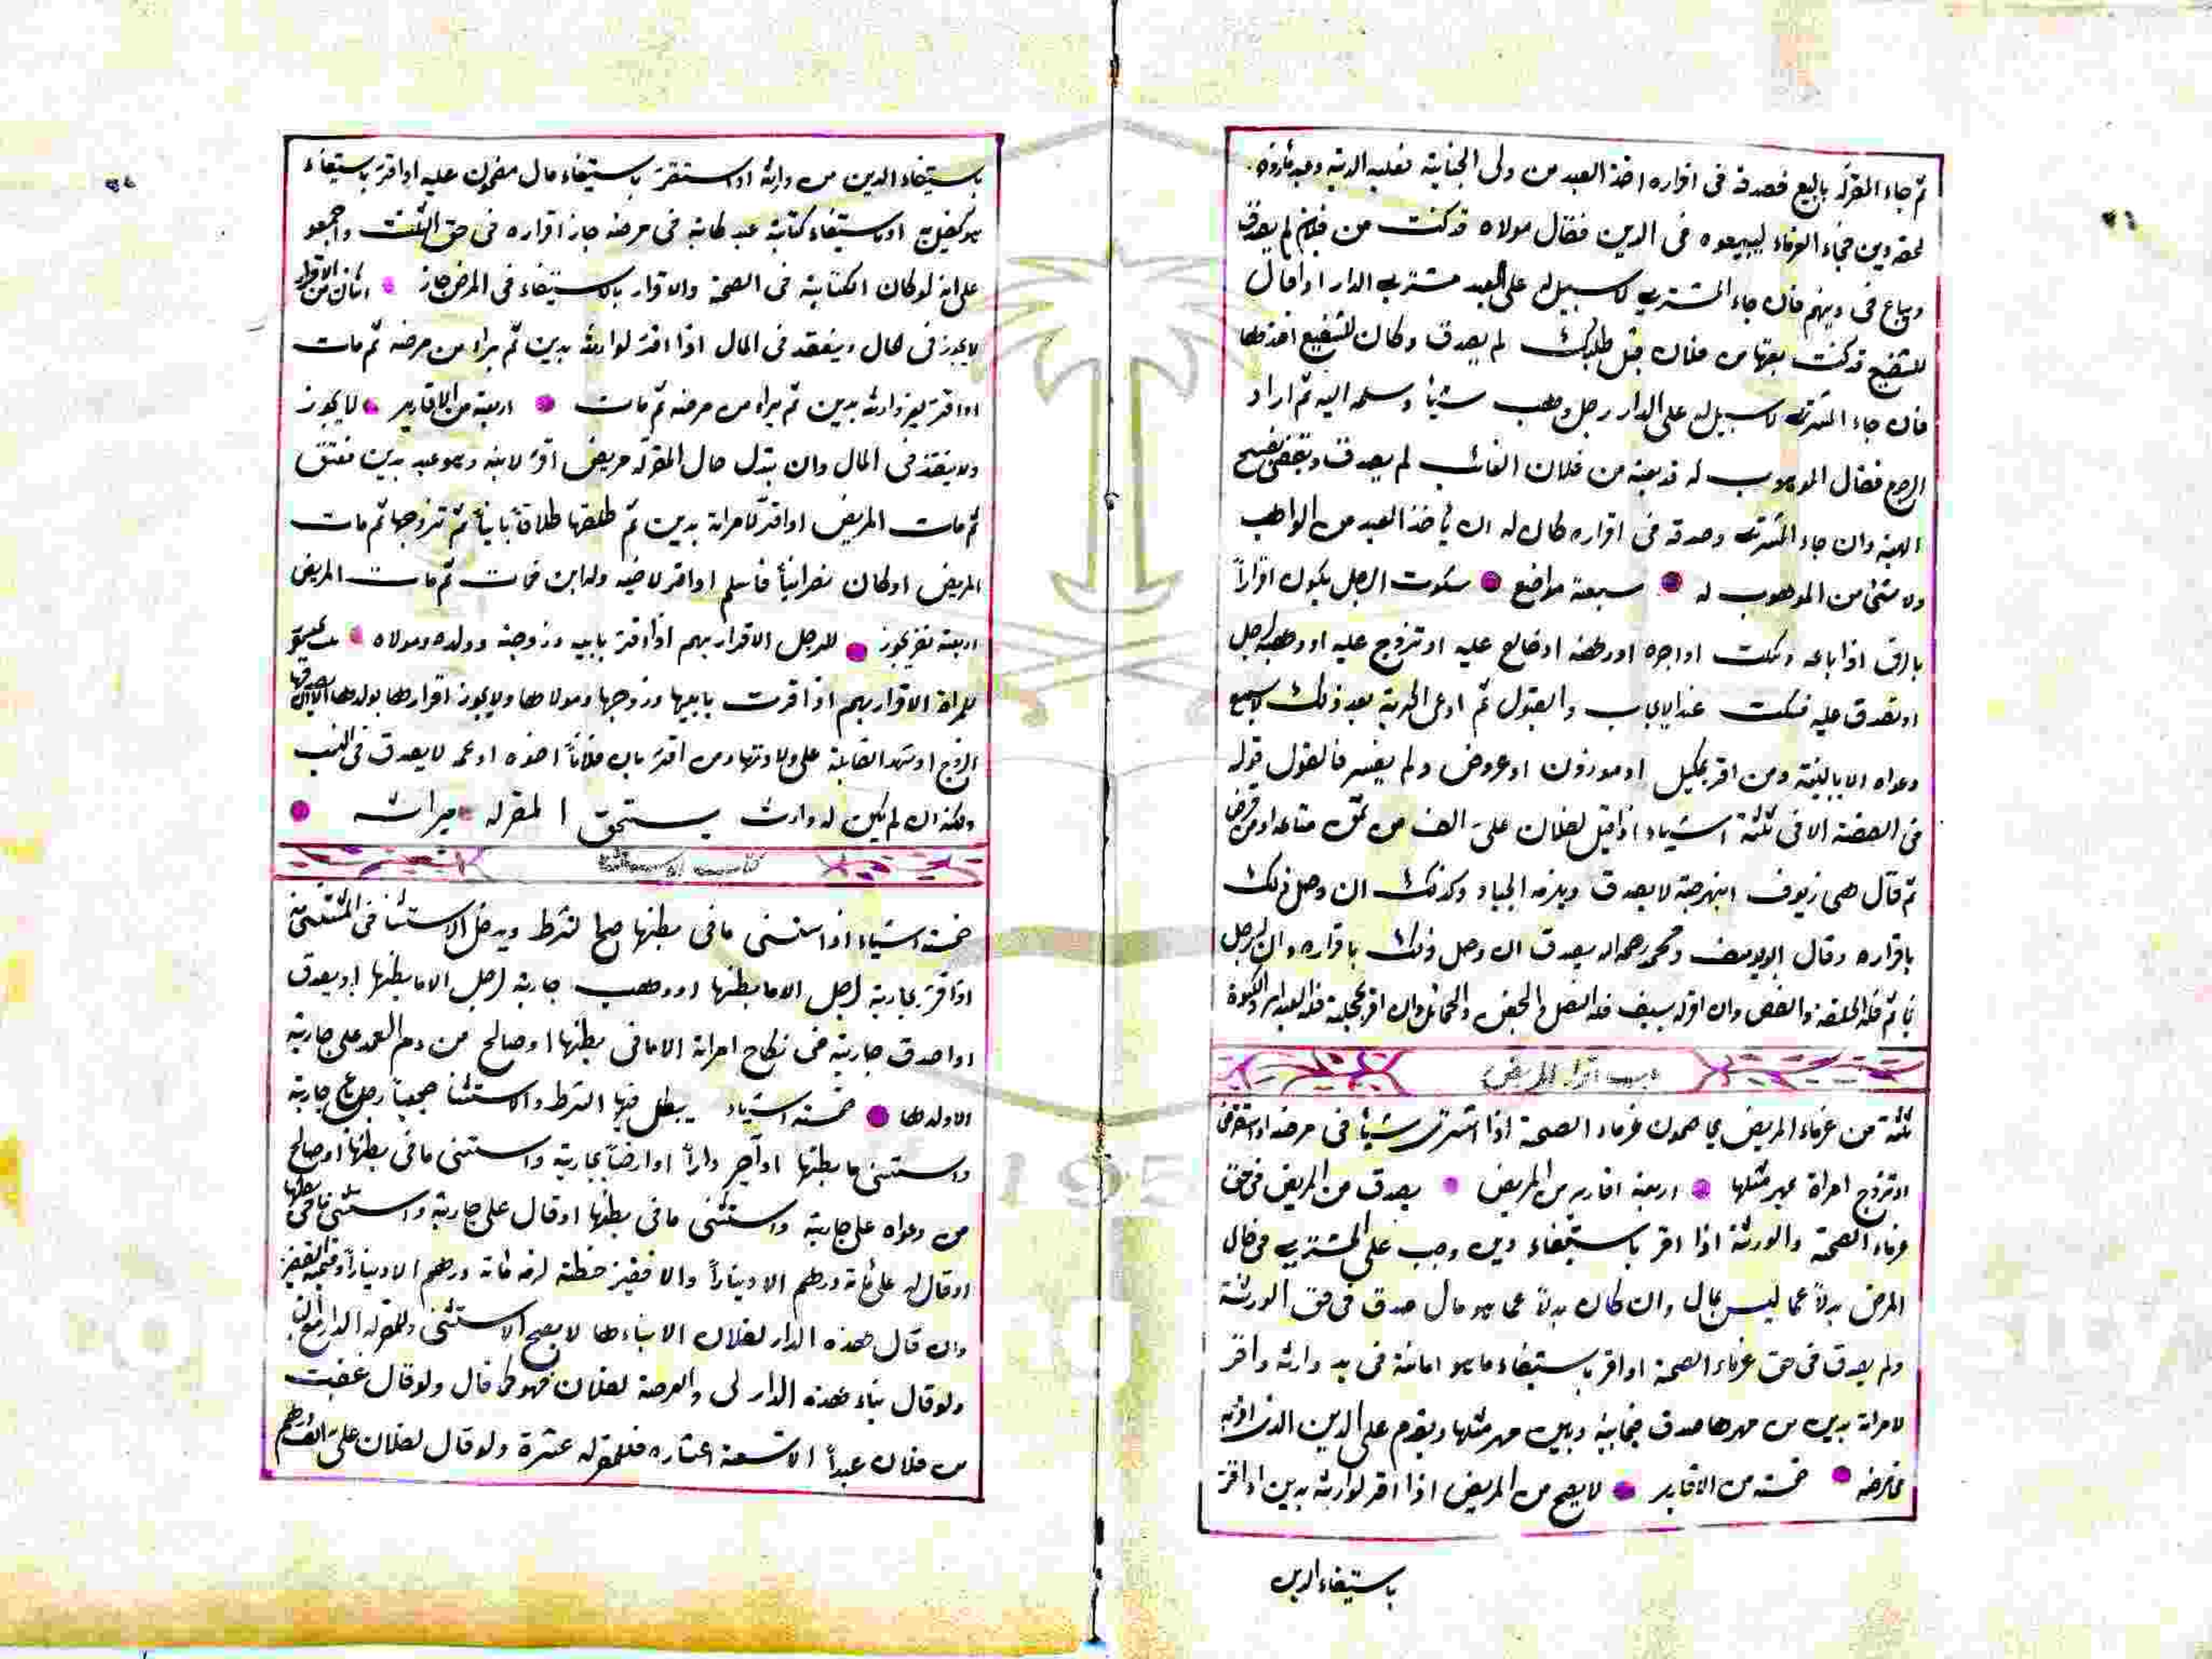 ثم جاء المقر له بالبيع فصدقه فى اقراره اخذ العبد من ولى الجناية فعليه الدية وعبد مأذون
لحقه دين فجاء الغرماء ليبيعوه فى الدين فقال مولاه قد كنت من فلان لم يصدق
ويباع فى دينهم فان جاء المشترى لا سبيل له على العبد مشترى الدار اذا قال
للشفيع قد كنت بعتها من فلان قبل طلبك لم يصدق وكان للشفيع اخذها
فان جاء المشترى لا سبيل له على الدار رجل وهب شيئا وسلمه اليه ثم اراد
الرجوع فقال الموهوب له قد بعته من فلان الغائب لم يصدق ويقضى بفسخ
الهبة وان جاء المشترى وصدقه فى اقراره كان له ان ياخذ العبد من الواهب
ولا شئ من الموهوب له سبعة مواضع سكوت الرجل يكون اقراراً
بالرق اذا باعه وسكت او اجره او رهنه او صالح عليه او تزوج عليه او وهبه لرجل
او تصدق عليه فسكت عند الايجاب والقبول ثم ادعى الحرية بعد ذلك لا يسمع
دعواه الا بالبينة ومن اقر بمكيل او موزون او عروض ولم يفسر فالقول قوله
فى الصفة الا فى ثلثة اشياء اذا قيل لفلان على الف من ثمن متاعه او من قرض
ثم قال هى زيوف او نبهرجة لا يصدق ويلزمه الجياد وكذلك ان وصل ذلك
باقراره وقال ابو يوسف ومحمد رحمه الله يصدق ان وصل ذلك باقراره وان اقر لرجل
بخاتم فله الحلقة والفص وان اقر له بسيف فله النصل والجفن والحمائل وان اقر بحجلة فله العيدان والكسوة
باب اقرار المريض
ثلثة من غرماء المريض يحاصون غرماء الصحة اذا اشترى شيئا فى مرضه او استقرض
او تزوج امراة بمهر مثلها اربعة اقارير من المريض يصدق من المريض فى حق
غرماء الصحة والورثة اذا اقر باستيفاء دين وجب على المشترى فى حال
المرض بدلاً عما ليس بمال وان كان بدلاً عما هو مال صدق فى حق الورثة
ولم يصدق فى حق غرماء الصحة او اقر باستيفاء ما هو امانة فى يد وارثه واقر
لامراته بدين من مهرها صدق فيما بينه وبين مهر مثلها ويقدم على الدين الذى اقر به
فى مرضه خمسة من الاقارير لا يصح من المريض اذا اقر لوارثه بدين او اقر
باستيفاء الدين
باستيفاء الدين من وارثه او استقر باستيفاء مال مضمون عليه او اقر باستيفاء
هو كفيل به او باستيفاء كتابة عبد كاتبه فى مرضه جاز اقراره فى حق الثلث واجمعوا
على انه لو كان الكتابة فى الصحة والاقرار بالاستيفاء فى المرض جاز اثنان من الاقرار
لا يجوز فى الحال وينعقد فى المال اذا اقر لوارثه بدين ثم براء من مرضه ثم مات
او اقر لغير وارثه بدين ثم براء من مرضه ثم مات اربعة من الاقارير لا يجوز
ولا ينفذ فى المال وان بتدل حال المقر له مريض اقر لابنه وهو عبد بدين فعتق
ثم مات المريض او اقر لامراته بدين ثم طلقها طلاقاً بايناً ثم تزوجها ثم مات
المريض او كان نصرانياً فأسلم او اقر لاخيه وله ابن فمات ثم مات المريض
اربعة نفر يجوز للرجل الاقرار بهم اذا اقر بابيه وزوجته وولده ومولاه
للمراة الاقرار بهم اذا اقرت بابيها وزوجها ومولاها ولا يجوز اقرارها بولدها الا ان يصدقها
الزوج او تشهد القابلة على ولادتها ومن اقر بان فلاناً اخوه او عمه لا يصدق فى النسب
ولكنه ان لم يكن له وارث يستحق المقر له ميراثه
كتاب الاستثناء
خمسة اشياء اذا استثنى ما فى بطنها صح الشرط ويدخل الاستثنا فى المستثنى منه
اذا اقر بجارية لرجل الا ما بطنها او وهب جارية لرجل الا ما بطنها او يصدق
او اصدق جارية فى نكاح امراته الا ما فى بطنها او صالح من دم العمد على جارية
الا ولدها خمسة اشياء يبطل فيها الشرط والاستثنا جميعاً رجل باع جارية
واستثنى ما بطنها او آجر داراً او ارضاً بجارية واستثنى ما فى بطنها او صالح
من دعواه على جارية واستثنى ما فى بطنها او قال على جارية واستثنى ما فى بطنها
او قال له على مائة درهم الا ديناراً والا قفيز حنطة لزمه مائة درهم الا ديناراً وقيمة القفيز
وان قال هذه الدار لفلان الا بناءها لا يصح الاستثنى وللمقر له الدار مع البناء
ولو قال بناء هذه الدار لى والعرصة لفلان فهو كما قال ولو قال غصبت
من فلان عبداً الا تسعة اعشاره فللمقر له عشرة ولو قال لفلان على الف درهم